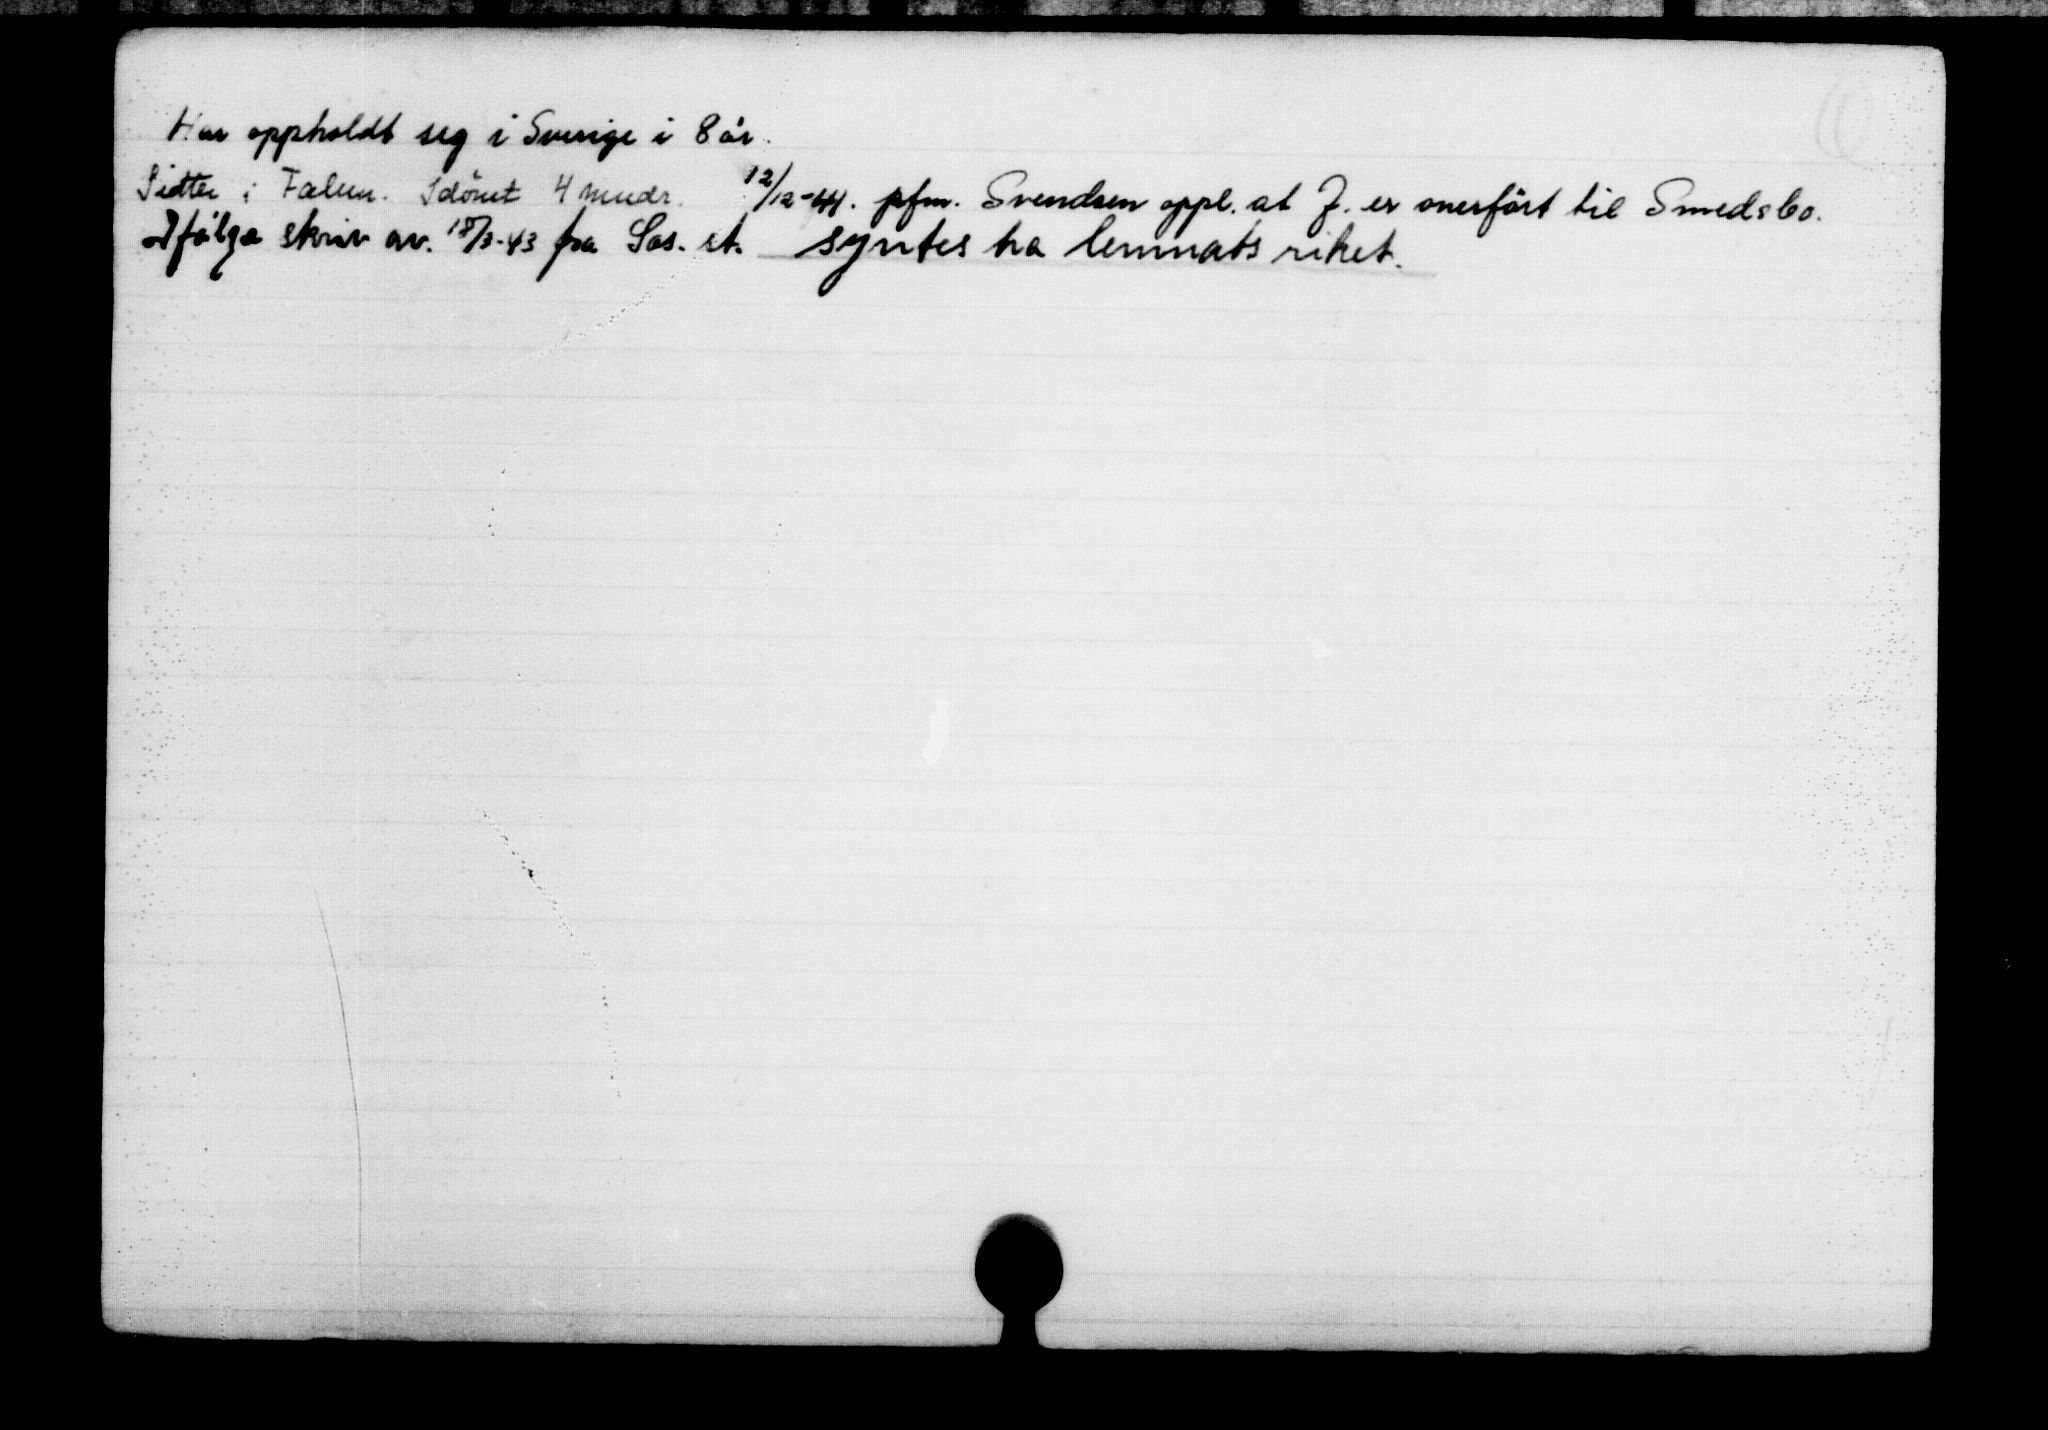 Har oppholdt seg i Sverige i 8 år.
Sitter i Falun. Idömt 4 mndr. 12/12-41. pfm. Svendsen oppl. at J. er overfört til Smedsbo.
Ifölge skriv av. 18/3-43 fra Sos. st. syntes ha lemnats riket.